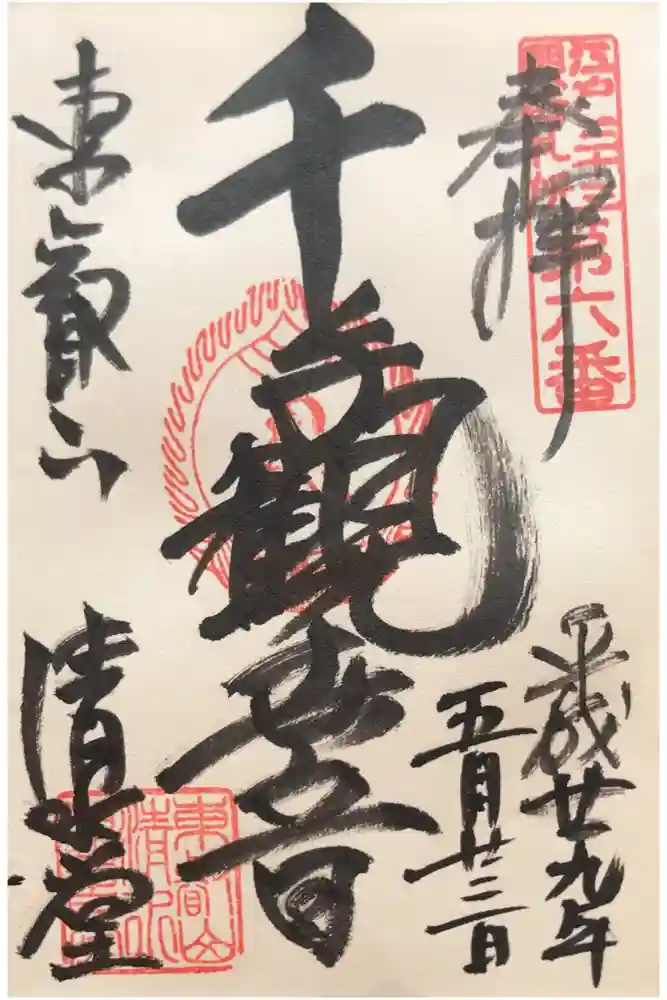 奉拝
第六番
平成廿九年
五月廿三日
千手觀世音
東叡山
清水堂
東叡山
清水